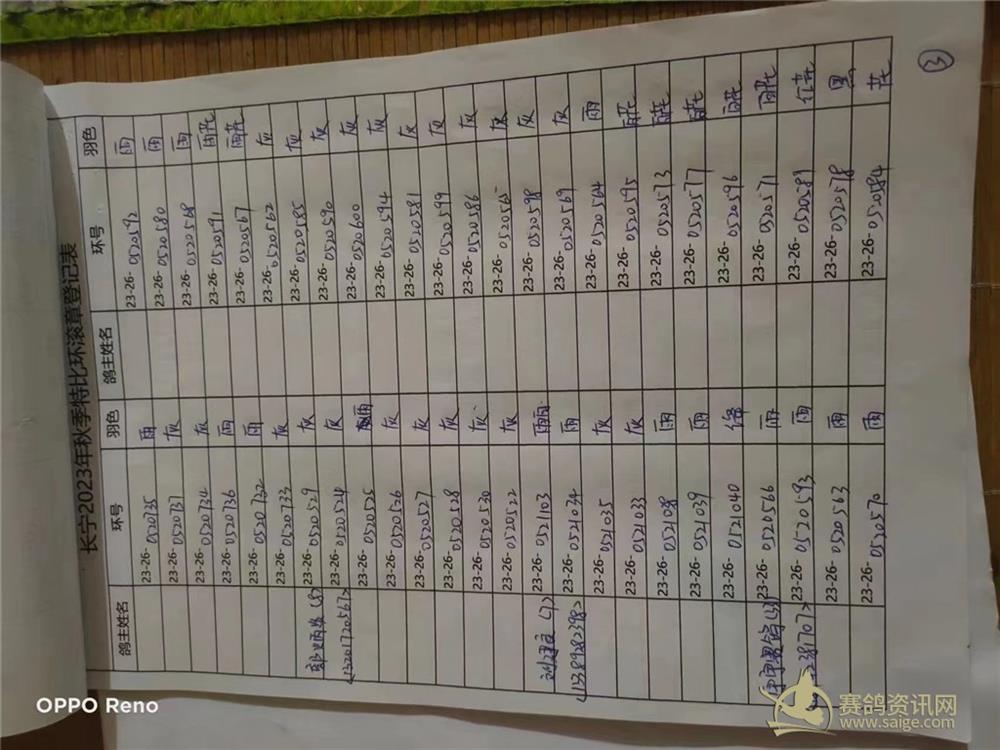 长宁2023年秋季特比环滚章登记表
鸽主姓名 环号 羽色 鸽主姓名 环号 羽色
23-26- 0520735 雨 23-26- 0520592 雨
23-26- 0520737 灰 23-26- 0520580 雨
23-26- 0520734 灰 23-26- 0520568 雨
23-26- 0520736 雨 23-26- 0520591 雨花
23-26- 0520732 雨 23-26- 0520567 雨花
23-26- 0520733 灰 23-26- 0520562 灰
(8) 23-26- 0520529 灰 23-26- 0520585 灰
<13201720567> 23-26- 0520524 灰 23-26- 0520590 灰
23-26- 0520525 23-26- 0520600 灰
23-26- 0520526 灰 23-26- 0520594 灰
23-26- 0520527 灰 23-26- 0520581 灰
23-26- 0520528 灰 23-26- 0520599 灰
23-26- 0520530 灰 23-26- 0520586 灰
23-26- 0520522 灰 23-26- 0520565 灰
(7) 23-26- 0521103 雨 23-26- 0520598 灰
<13898282398> 23-26- 0521034 雨 23-26- 0520569 灰
23-26- 0521035 灰 23-26- 0520564 雨
23-26- 0521033 灰 23-26- 0520595 雨花
23-26- 0521088 雨 23-26- 0520573 雨花
23-26- 0521039 雨 23-26- 0520577 雨花
23-26- 0521040 绛 23-26- 0520596 雨花
23-26- 0520566 雨 23-26- 0520571 雨花
23-26- 0520593 雨 23-26- 0520589 红花
23-26- 0520563 雨 23-26- 0520578 黑
23-26- 0520570 雨 23-26- 0520584 花
③
OPPO Reno
赛鸽资讯网
www.saige.com